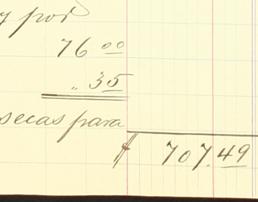 y por
76 00
.. 35
secas para
$ 707.49